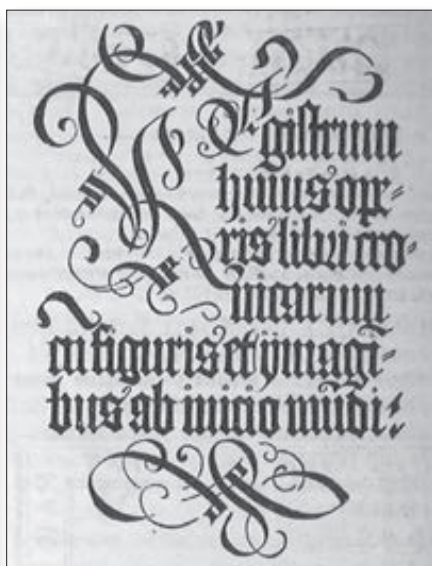 REgiſtrum
huius ope-
ris libri cro-
nicarum
cū figuris et ymagi-
bus ab inicio mūdi: